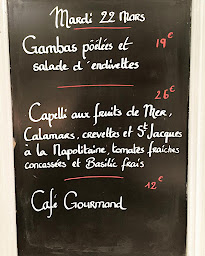 Mardi 22 Mars
Gambas pôélées et 19€
salade d'endivettes
26€
Capelli aux fruits de Mer,
Calamars, crevettes et St Jacques
à la Napolitaine, tomates fraîches
concassées et Basilic frais
12€
Café Gourmand